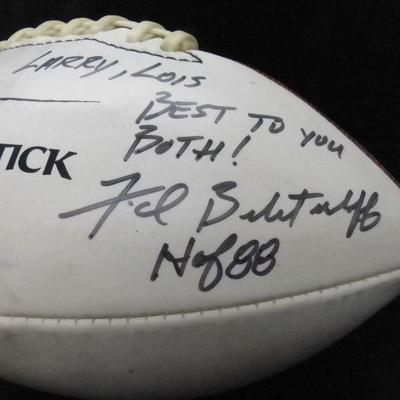 LARRY, LOIS
BEST TO YOU
BOTH!
TICK
Fred Biletnikoff
Hof 88